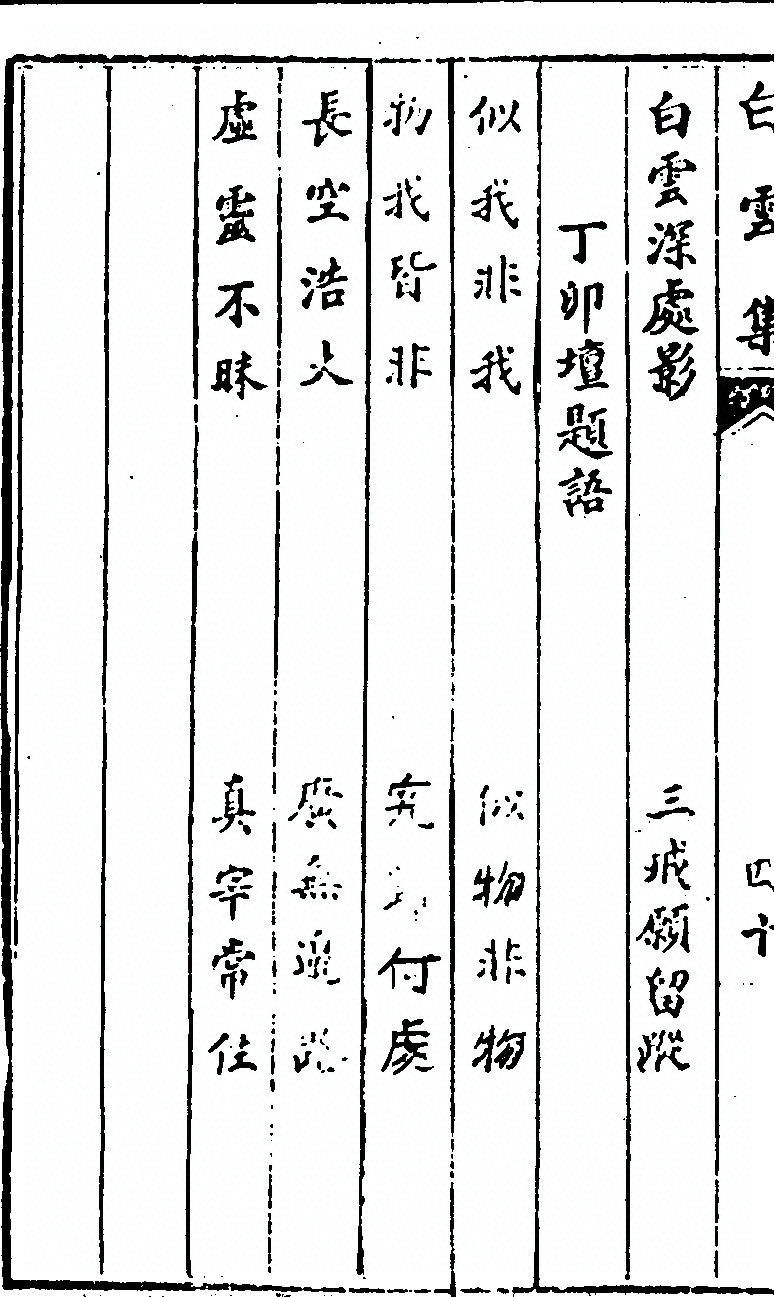 白雲集 四十
白雲深處影 三城願留蹤
丁卯壇題語
似我非我 似物非物
物我皆非 究 付處
長空浩大 廣無邊
虛靈不昧 真宰常住